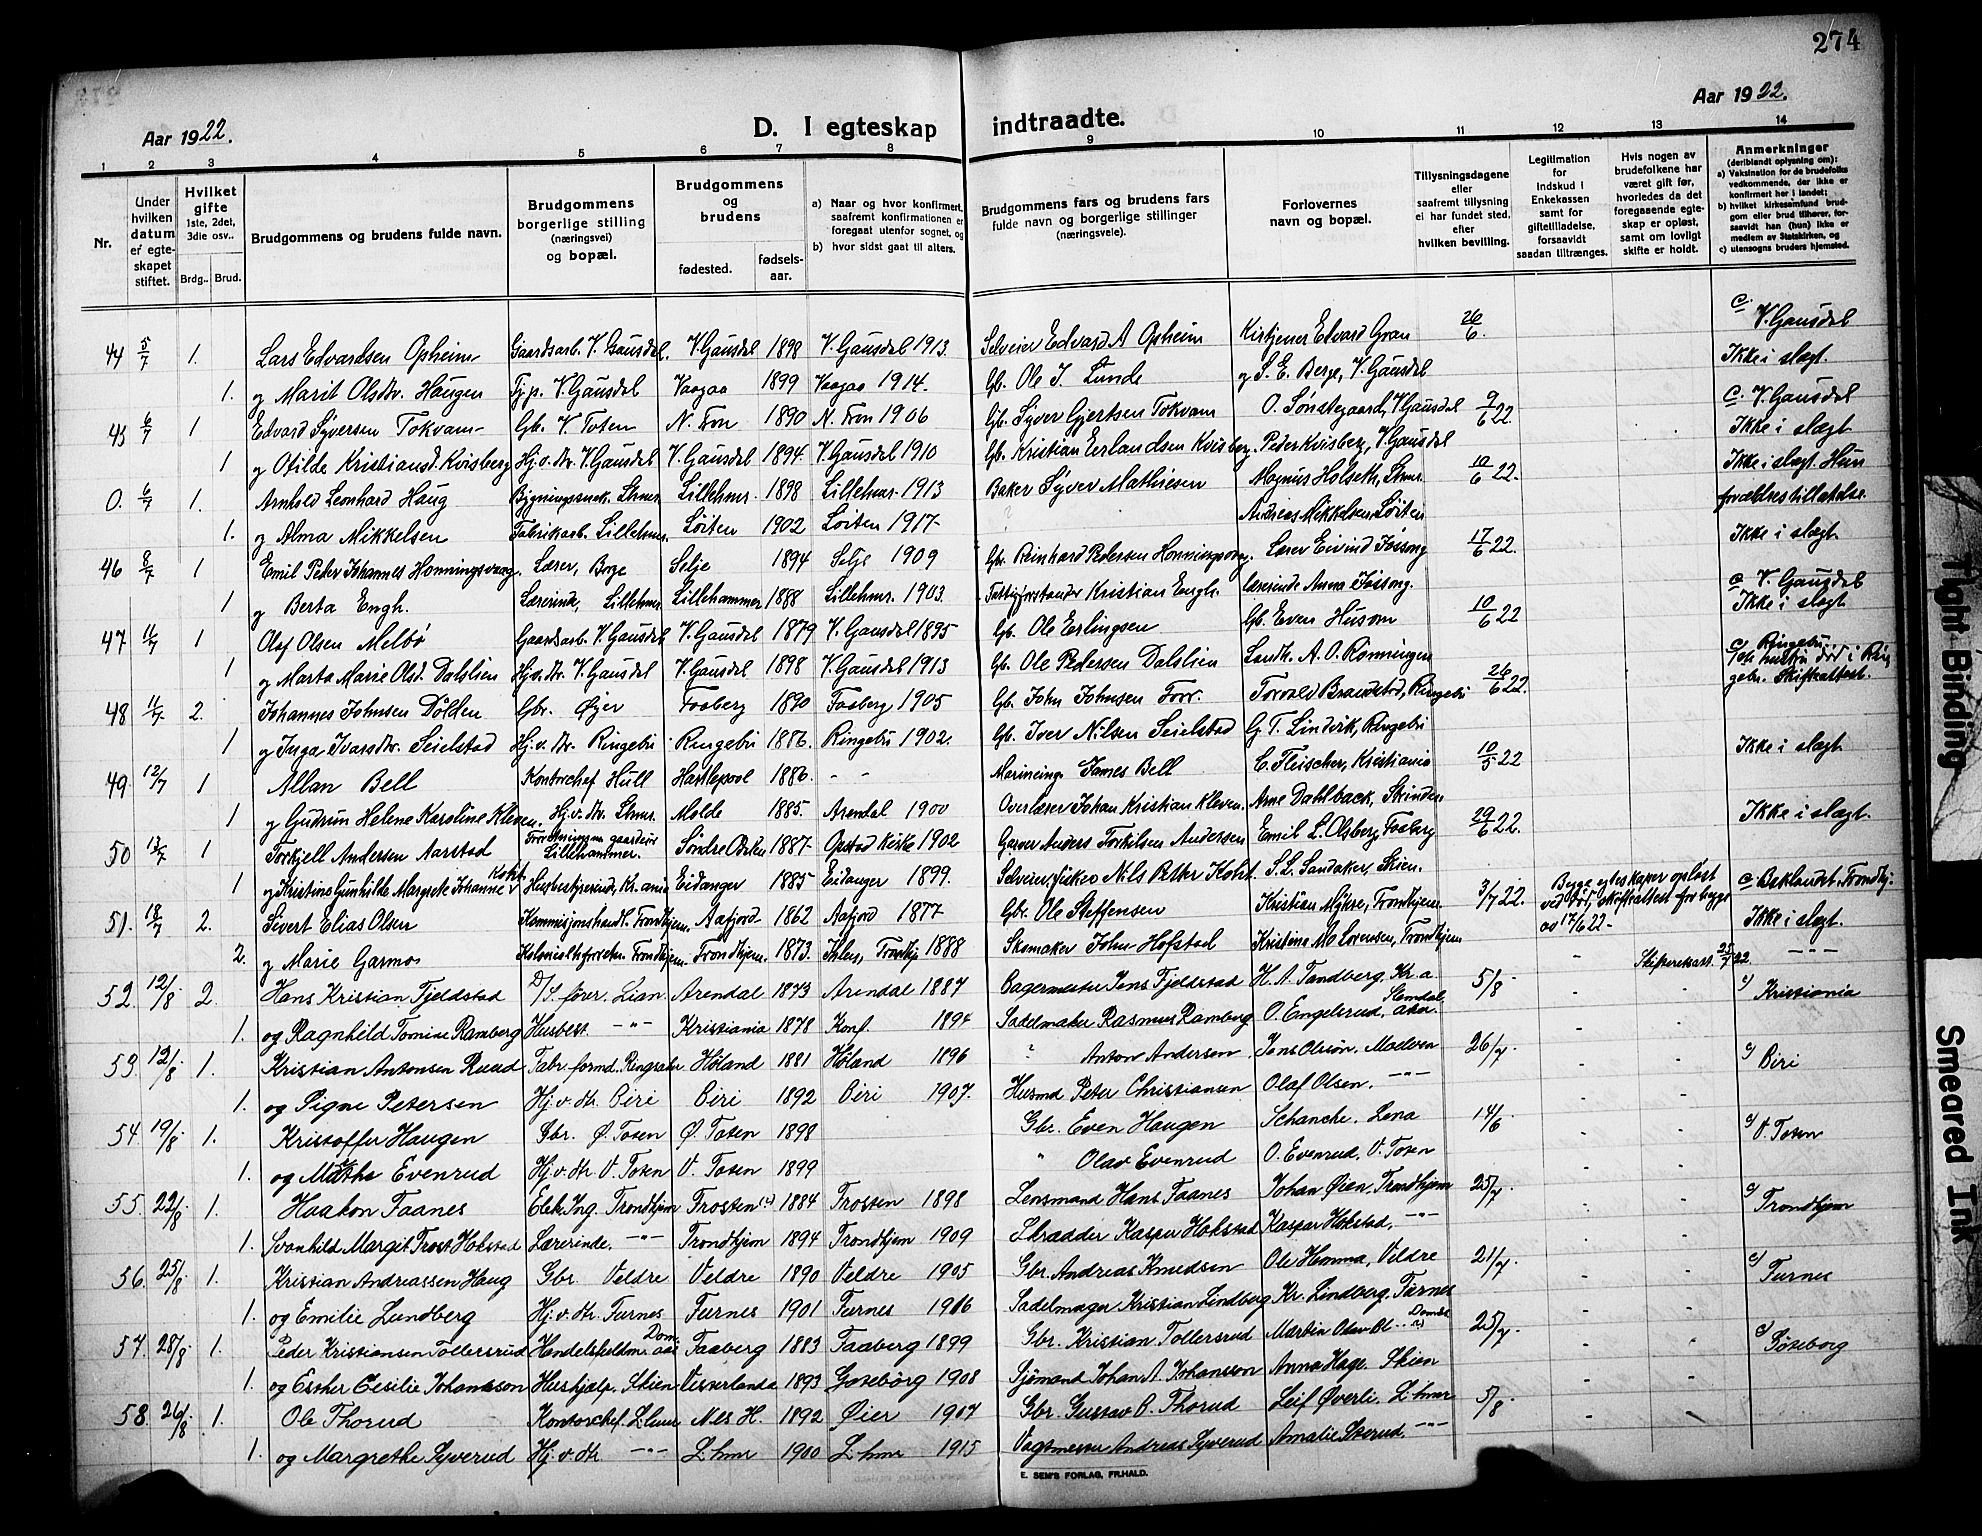 274
Aar 1922.
D. I egteskap indtraadte.
Aar 1922.
1 2 3 4 5 6 7 8 9 10 11 12 13 14
Nr.
Under hvilken datum er egteskapet stiftet.
Hvilket gifte 1ste, 2det, 3die osv..
Brdg.. Brud.
Brudgommens og brudens fulde navn.
Brudgommens borgerlige stilling (næringsvei) og bopæl.
Brudgommens og brudens
fødested. fødselsaar.
a) Naar og hvor konfirmert, saafremt konfirmationen er foregaat utenfor sognet, og
b) hvor sidst gaat til alters.
Brudgommens fars og brudens fars fulde navn og borgerlige stillinger (næringsveie).
Forlovernes navn og bopæl.
Tillysningsdagene eller saafremt tillysning ei har fundet sted, efter hvilken bevilling.
Legitimation for Indskud i Enkekassen samt for giftetilladelse, forsaavidt saadan tiltrænges.
Hvis nogen av brudefolkene har været gift før, hvorledes da det foregaaende egteskap er opløst, samt om lovligt skifte er holdt.
Anmerkninger (deriblandt oplysning om):
a) Vaksination for de brudefolks vedkommende, der ikke er konfirmert her i landet;
b) hvilket kirkesamfund brudgom eller brud tilhører, forsaavidt han (hun) ikke er medlem av Statskirken, og
c) utensogns bruders hjemsted.
44 5/7 1. Lars Edvardsen Opheim Gaardsarb. V. Gausdal. V. Gausdal 1898 V. Gausdal 1913. Selveier Edvard A Opheim Kirtjener Edvard Gran 26/6. c. V. Gausdal
1. og Marit Olsdtr. Haugen Tj.p. V. Gausdal Vaagaa 1899 Vaagaa 1914. Gb. Ole J. Lunde og S. E. Berge, V. Gausdal Ikke i slegt.
45 6/7 1 Edvard Syversen Tokvam Gb. V. Toten N. Fron 1890 N. Fron 1906 Gb. Syver Gjertsen Tokvam O. Sønstegaard, V. Gausdal 9/6 22. c. V. Gausdal
1 og Otilde Kristiansd. Kvisberg Hj.v. dtr. V. Gausdal V. Gausdal 1894. V. Gausdal 1910 Gb. Kristian Erlandsen Kvisberg. Peder Kvisberg, V. Gausdal Ikke i slegt
0. 6/7 1. Arnhold Leonhard Haug Bygningssnek. Lhmr. Lillehmr. 1898 Lillehmr. 1913 Baker Syver Mathiesen Magnus Holseth, Lhmr. 10/6 22. Ikke i slegt. Hun
1. og Alma Mikkelsen Fabrikarb. Lillehmr. Løiten 1902 Løiten 1917 ? Andreas Mikkelsen, Løiten forældrestilladelse.
46 8/7 1 Emil Peter Johannes Honningsvaag. Lærer, Borge Selje 1894 Selje 1909 Gb. Reinhard Pedersen Honningsvaag. Lærer Eivind Jossong 17/6 22. Ikke i slegt
1 og Berta Engh. Lærerinde, Lillehmr. Lillehammer 1888 Lillehmr. 1903. Fattigforstander Kristian Engh. Lærerinde Anna Jossong.
47 11/7 1 Olaf Olsen Melbö Gaardsarb. V. Gausdal V. Gausdal 1879 V. Gausdal 1895 Gb. Ole Erlingsen Gb. Even Husom 10/6 22 c. V. Gausdal Ikke i slegt
1 og Marta Marie Olsd. Dalslien Hj.v. dtr. V. Gausdal V. Gausdal 1898 V. Gausdal 1913 Gb. Ole Pedersen Dalslien Landh. A. O. Rønningen
48 11/7. 2. Johannes Johnsen Dölden Gbr. Øjer Faaberg 1890 Faaberg 1905 Gb. John Johnsen Torvald Brandstad, Ringebu 26/6 22. c/ Ringebu 1ste hustru død i Ringebu. Skifteattest.
1 og Inga Ivarsdtr. Seielstad Hj.v. dtr. Ringebu Ringebu 1886. Ringebu 1902. Gb. Iver Nilsen Seielstad G. T. Lindvik, Ringebu
49 12/7 1 Allan Bell Kontorchef Hull Hartlepool 1886. - - Marineing. James Bell C. Fleischer, Kristiania 10/5 22 Ikke i slegt
1 og Gudrun Helene Karoline Kleven. Hj.v. dtr. Lhmr. Molde 1885. Arendal 1900 Overlærer Johan Kristian Kleven. Arne Dahlback,
50 13/7 1 Torkjell Andersen Aarstad Lillehammer. 1887 Kirke 1902 Garver Anders Torkilsen Andersen Emil L. Olsberg, Faaberg 29/6 22. Ikke i slegt.
1 og Kristine Gunhilde Margrete Johanne Kohlt Husbestyrerinde, Kr.ania Eidanger 1885 Eidanger 1899. Selveier, fisker Nils Peter Kohlt. S. L. Sandaker, Skien.
51. 18/7 2. Sivert Elias Olsen Kommisjonshandl. Trondhjem. Aafjord 1862 Aafjord 1877 Gbr. Ole Steffensen Kristian Myhre, Trondhjem. 3/7 22. Begge egteskaper opløst ved död, skifteattest for begge av 17/6 22 c. Baklandet, Trondhj.
2. og Marie Garmo Kolonialforretn. Trondhjem. Trondhjem. 1873. Ihlen, Trondhj 1888 Skomaker John Hofstad Kristine M. Lorensen, Trondhjem Ikke i slegt.
52. 12/8 2. Hans Kristian Fjeldstad D/S fører. Lian Arendal 1873 Arendal 1887 Bagermester Jens Fjeldstad H. A. Tandberg. Kr.a 5/8 - Skifteretsatt. 25/7 22 - - -
1. og Ragnhild Tomine Ramberg Husbest. -"- Kristiania 1878 Konf. 1894 Sadelmaker Rasmus Ramberg O. Engelsrud, c/ Kristiania
53. 12/8. 1. Kristian Antonsen Ruud Fabr. formd. Ringsaker Høland 1881 Høland 1896 ? Anton Andersen Jens Olsøn. Moelven 26/7.
1. og Signe Petersen Hj.v. dtr. Biri Biri 1892 Biri 1907. Husmd Peter Christiansen Olaf Olsen. -"- c/ Biri
54. 19/8. 1. Kristoffer Haugen Gbr. Ø. Toten Ø. Toten 1898 Gbr. Even Haugen Schanche. Lena 14/6
1. og Mathe Evenrud Hj.v. dtr. V. Toten V. Toten 1899 " Olav Evenrud O. Evenrud, V. Toten c/ V. Toten
55. 22/8. 1. Haakon Faanes Elek. Ing. Trondhjem Frosten (?) 1884 Frosten 1898 Lensmand Hans Faanes Johan Øien, Trondhjem 25/7.
1. Svanhild Margit Trost Hokstad Lærerinde. -"- Trondhjem 1894 Trondhjem 1909 Skrædder Kasper Hokstad Kaspar Hokstad. -"- c/ Trondhjem
56. 25/8. 1. Kristian Andreassen Haug Gbr. Veldre Veldre 1890 Veldre 1905 Gbr. Andreas Knudsen Ole Homma, Veldre 21/7.
1. og Emilie Lundberg Hj.v. dtr. Furnes Furnes 1901 Furnes 1916 Sadelmager Kristian Lindberg Kr. Lindberg, Furnes c/ Furnes
57. 28/8. 1. Peder Kristiansen Tollersrud Handelsfuldm. Domaas Faaberg 1883 Faaberg 1899 Gbr. Kristian Tollersrud Martin Olav 25/7.
1. og Esther Cecilie Johansson Hushjælp, Skien Vesterlanda 1893 Goteborg 1908 Sjømand Johan A. Johansson Anna Hage. Skien c/ Göteborg
58. 26/8. 1. Ole Thorud Kontorchef. L.hmr Nes H. 1892 Øier 1907 Gbr. Gustav O. Thorud Leif Øverli. L.hmr 5/8.
1. og Margrethe Syverud Hj.v. dtr. -"- L.hmr 1900 L.hmr 1915 Vagtmester Andreas Syverud Amalie Skerud. -"-
E. SEM'S FORLAG, FR.HALD.
Tight Binding
Smeared Ink